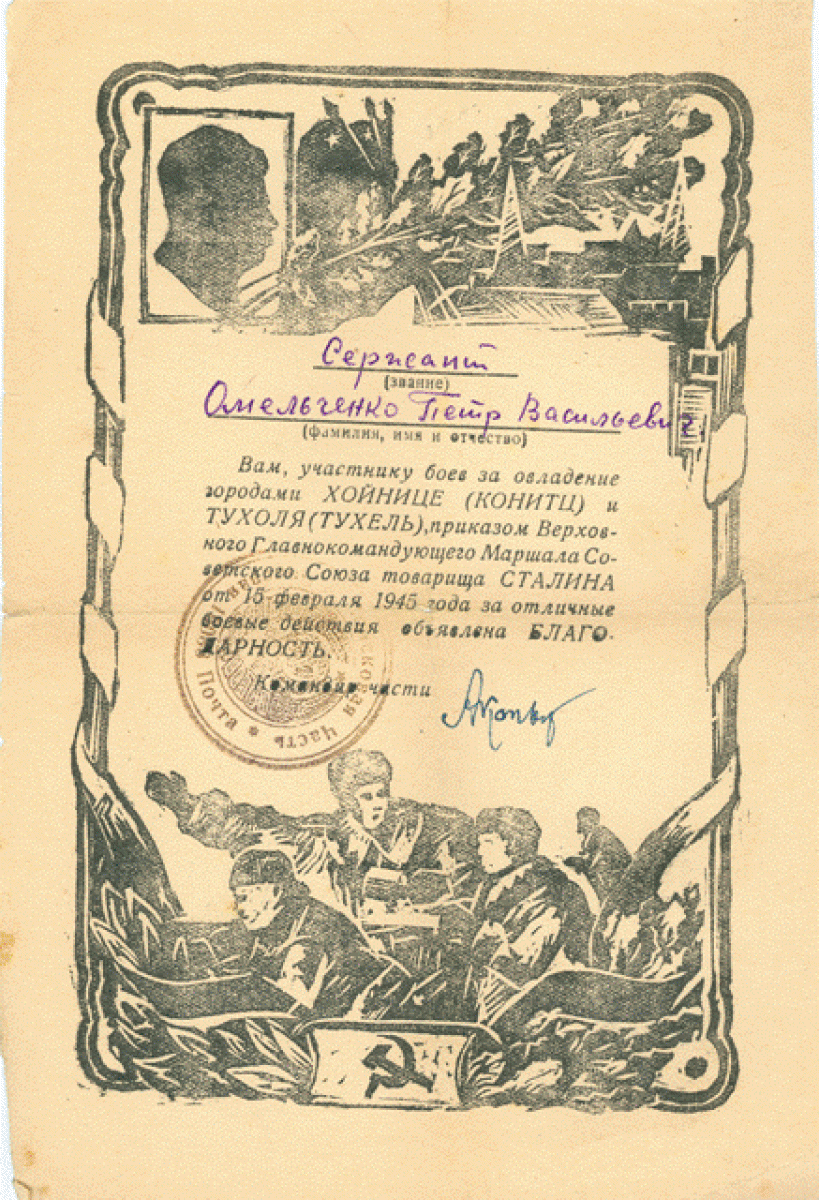 Сержант
(звание)
Омельченко Петр Васильевич,
(фамилия, имя и отчество)
Вам, участнику боев за овладение
городами ХОЙНИЦЕ (КОНИТЦ) и
ТУХОЛЯ (ТУХЕЛЬ), приказом Верхов-
ного Главнокомандующего Маршала Со-
ветского Союза товарища СТАЛИНА
от 15 февраля 1945 года за отличные
боевые действия объявлена БЛАГО-
ДАРНОСТЬ.
Командир части
Часть * Почта *